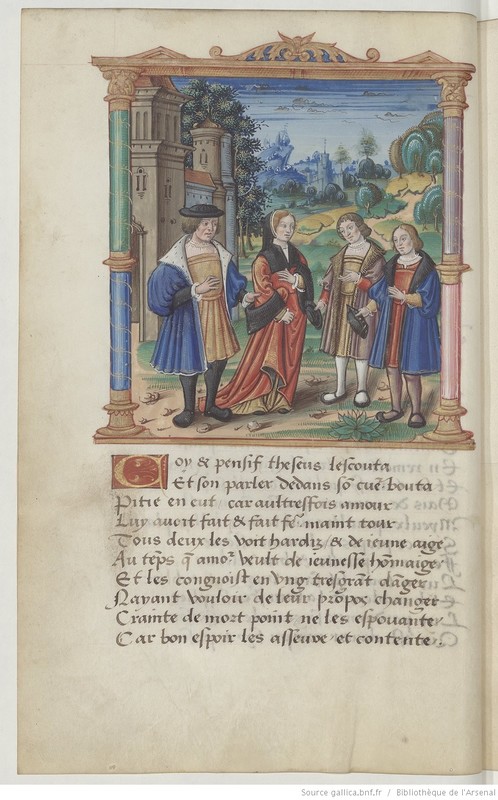 Coy & pensif theseus lescouta
Et son parler dedans sō cue᷑ bouta
Pitie en eut car aultresfois amour
Luy auoit fait & fait fe᷑ maint tour
Tous deux les voit hardiz & de ieune aige
Au tēps q̄ amo᷑ veult de ieunesse hōmaige
Et les congnoist en vng tresgrāt dāger
Nayant vouloir de leur propox changer
Crainte de mort point ne les espouante
Car bon espoir les asseure et contente.
Source gallica.bnf.fr / Bibliothèque de l'Arsenal